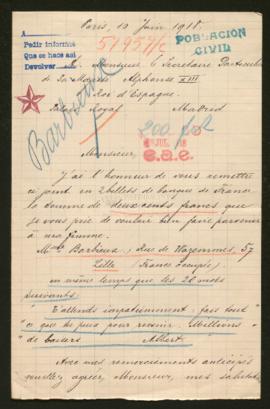 Paris, 10 Juin 1918.
A
Pedir informes
Que se hace así
Devolver
51951/c
POBLACIÓN
CIVIL
Monsieur le Secrétaire Particulier
de Sa Majesté Alphonse XIII
Roi d'Espagne.
Palais Royal Madrid
Barbieux
200 f
JUL 18
e.a.e.
Monsieur,
J'ai l'honneur de vous remettre
ci joint en 2 billets de banque de France
la somme de deux cents francs que
je vous prie de vouloir bien faire parvenir
à ma femme.
Mme Barbieux, rue de Wazemmes, 57
Lille (France occupée)
en même temps que les 20 mots
suivants:
"J'attends impatiemment; fais tout
ce que tu peux pour revenir. Millions
de baisers Albert".
Avec mes remerciements anticipés
veuillez agréer, Monsieur, mes salutations